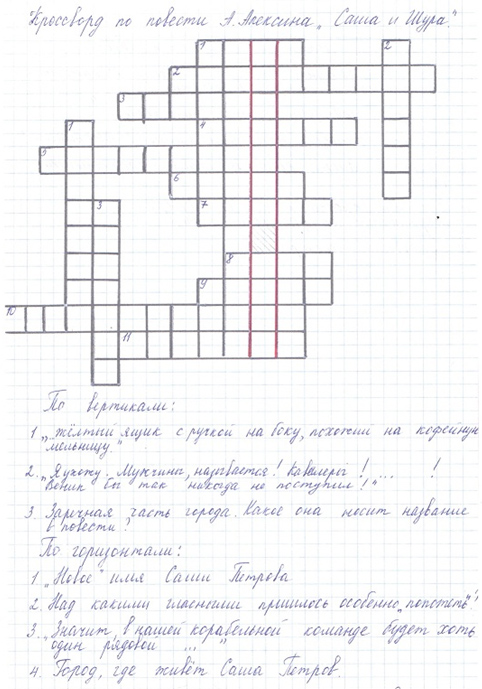 Кроссворд по повести А. Алексина „Саша и Шура".
1
2
2
3
1
4
5
6
3
7
8
9
10
11
По вертикали:
1. „...жёлтый ящик с ручкой на боку, похожий на кофейную
мельницу."
2. „Я ухожу. Мужчины, называется! Кавалеры! ... !
Веник бы так никогда не поступил!"
3. Заречная часть города. Какое она носит название
в повести?
По горизонтали:
1. „Новое" имя Саши Петрова
2. Над какими гласными пришлось особенно „попотеть"?
3. „Значит, в нашей корабельной команде будет хоть
один рядовой ... "
4. Город, где живёт Саша Петров.